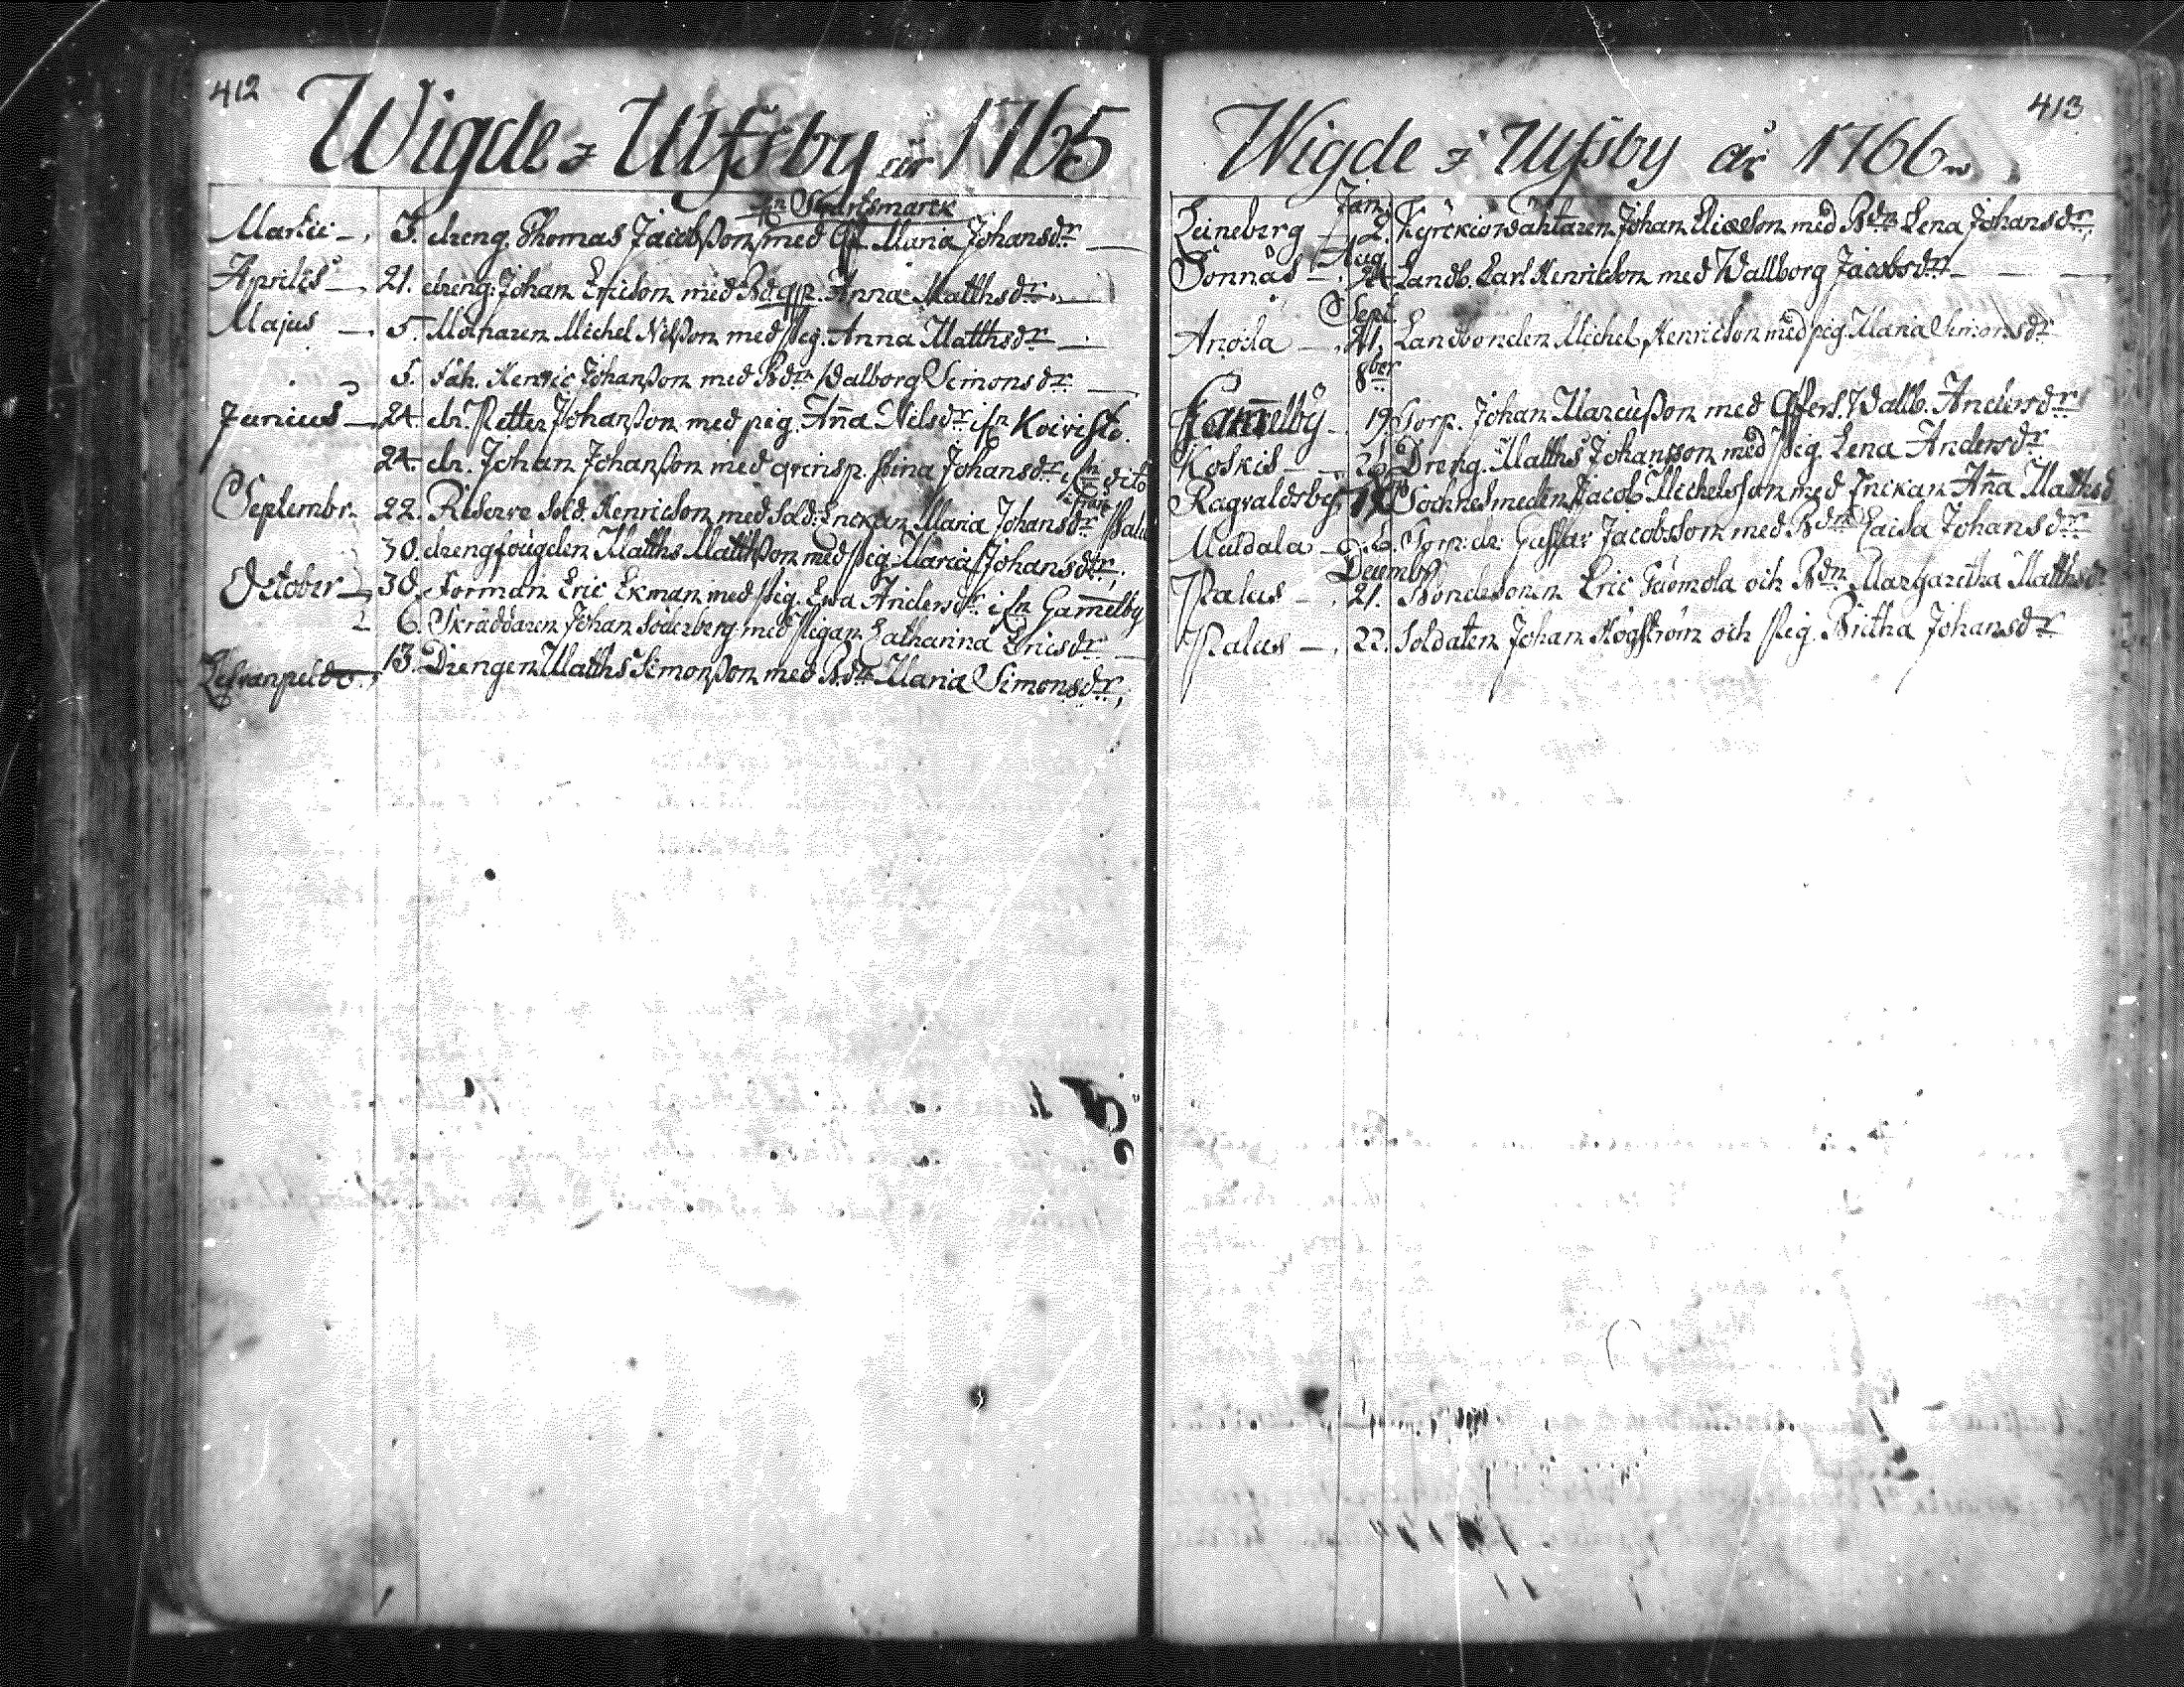 412
Wigde i Ulfsby år 1765
ifr. Svartsmarck
Martii 3. dreng. Thomas Jacobsson med Maria Johansdr
Aprilis 21. dreng. Johan Ericson med Anna Matthsdr
Majus 5. Michel Nilsson med pig. Anna Matthsdr
5. Henric Johansson med Bdr Walborg Simonsdr
Junius 24. dr. Petter Johansson med pig. Aña Nilsdr ifr Koivisto.
24. dr. Johan Johansson med Stina Johansdr ifr dito
Septembr. 22. Reserve Sold. Henricson med Sold. Enckan Maria Johansdr
30. drengfougden Matths Matthsson med pig. Maria Johansdr,
October 30. Forman Eric Ekman med pig. Ewa Andersdr ifr Gam̃elby
6. Skräddaren Johan Söderberg med pigan Catharina Ericsdr
13. Drengen Matths Simonsson med Bdr Maria Simonsdr,
413
Wigde i Ulfsby år 1766
Jan.
Leineberg 2. Kyrckiowäktaren Johan Eliæson med Bdr Lena Johansdr,
Aug.
Sonnäs 24 Landb. Carl Henricson med Wallborg Jacobsdr
Sept.
Anoila 21. Landbonden Michel Henricson med pig. Maria Simonsdr
8ber
Gam̃elby 19. Torp. Johan Marcusson med Wallb. Andersdr
Koskis 26. Dreng. Matths Johansson med pig. Lena Andersdr
Ragvaldsby Sochnesmeden Jacob Michelsson med Enckan Aña Mathsd
Muldala 26. Torp. dr. Gustav Jacobsson med Bdr Caisa Johansdr
Decemb
Palus 21. Bondesonen Eric och Bdr Margaretha Matthsdr
Palus 22. Soldaten Johan Högström och pig. Britha Johansdr